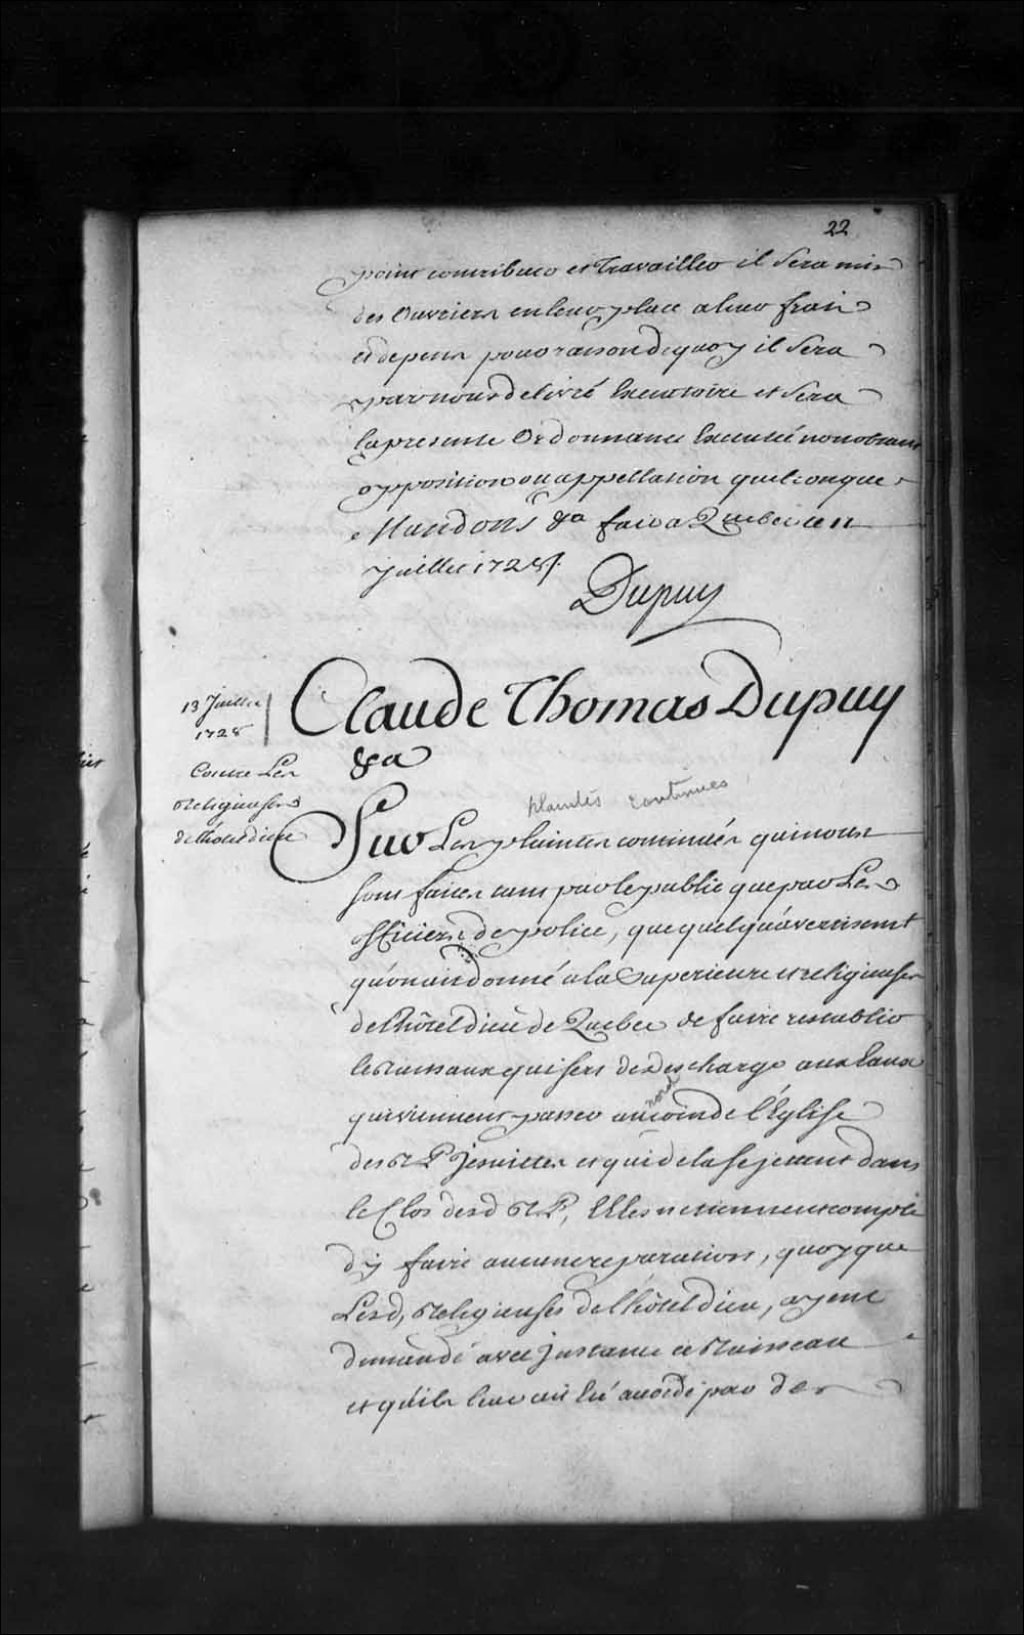 22
point contribuer et travailler il Sera mis
des Ouvriers en leur place a leur frais
et depens pour raison de quoy il Sera
par nous delivré Executoire et Sera
La presente Ordonnance Executée nonobstant
opposition ou appellation quelconque
Mandons &a fait a Quebec en
Juillet 1728/.
Dupuy
13 Juillet
1728
Contre Les
Religieuses
de l'hotel dieu
Claude Thomas Dupuy
&a
plaintes continues
Sur Les plaintes continuées qui nous
sont faites tant par le public que par Les
officiers de police, que quelqu'avertissement
qu'on ait donné a la Superieure et religieuses
de l'hôtel dieu de Quebec de faire restablir
le Ruisseaux qui sert de descharge aux Eaux
qui viennent passer au coin de l'Eglise
nord
des R P Jesuittes et qui de la se jettent dans
le Clos desd R P, Elles ne tiennent compte
d'ÿ faire aucune reparation, quoyque
Lesd, Religieuses de l'hôtel dieu, ayent
demandé avec Jnstance ce Ruisseau
et qu'il leur ait Eté accordé par des